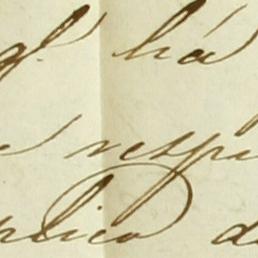 q.' há
respi
plico d